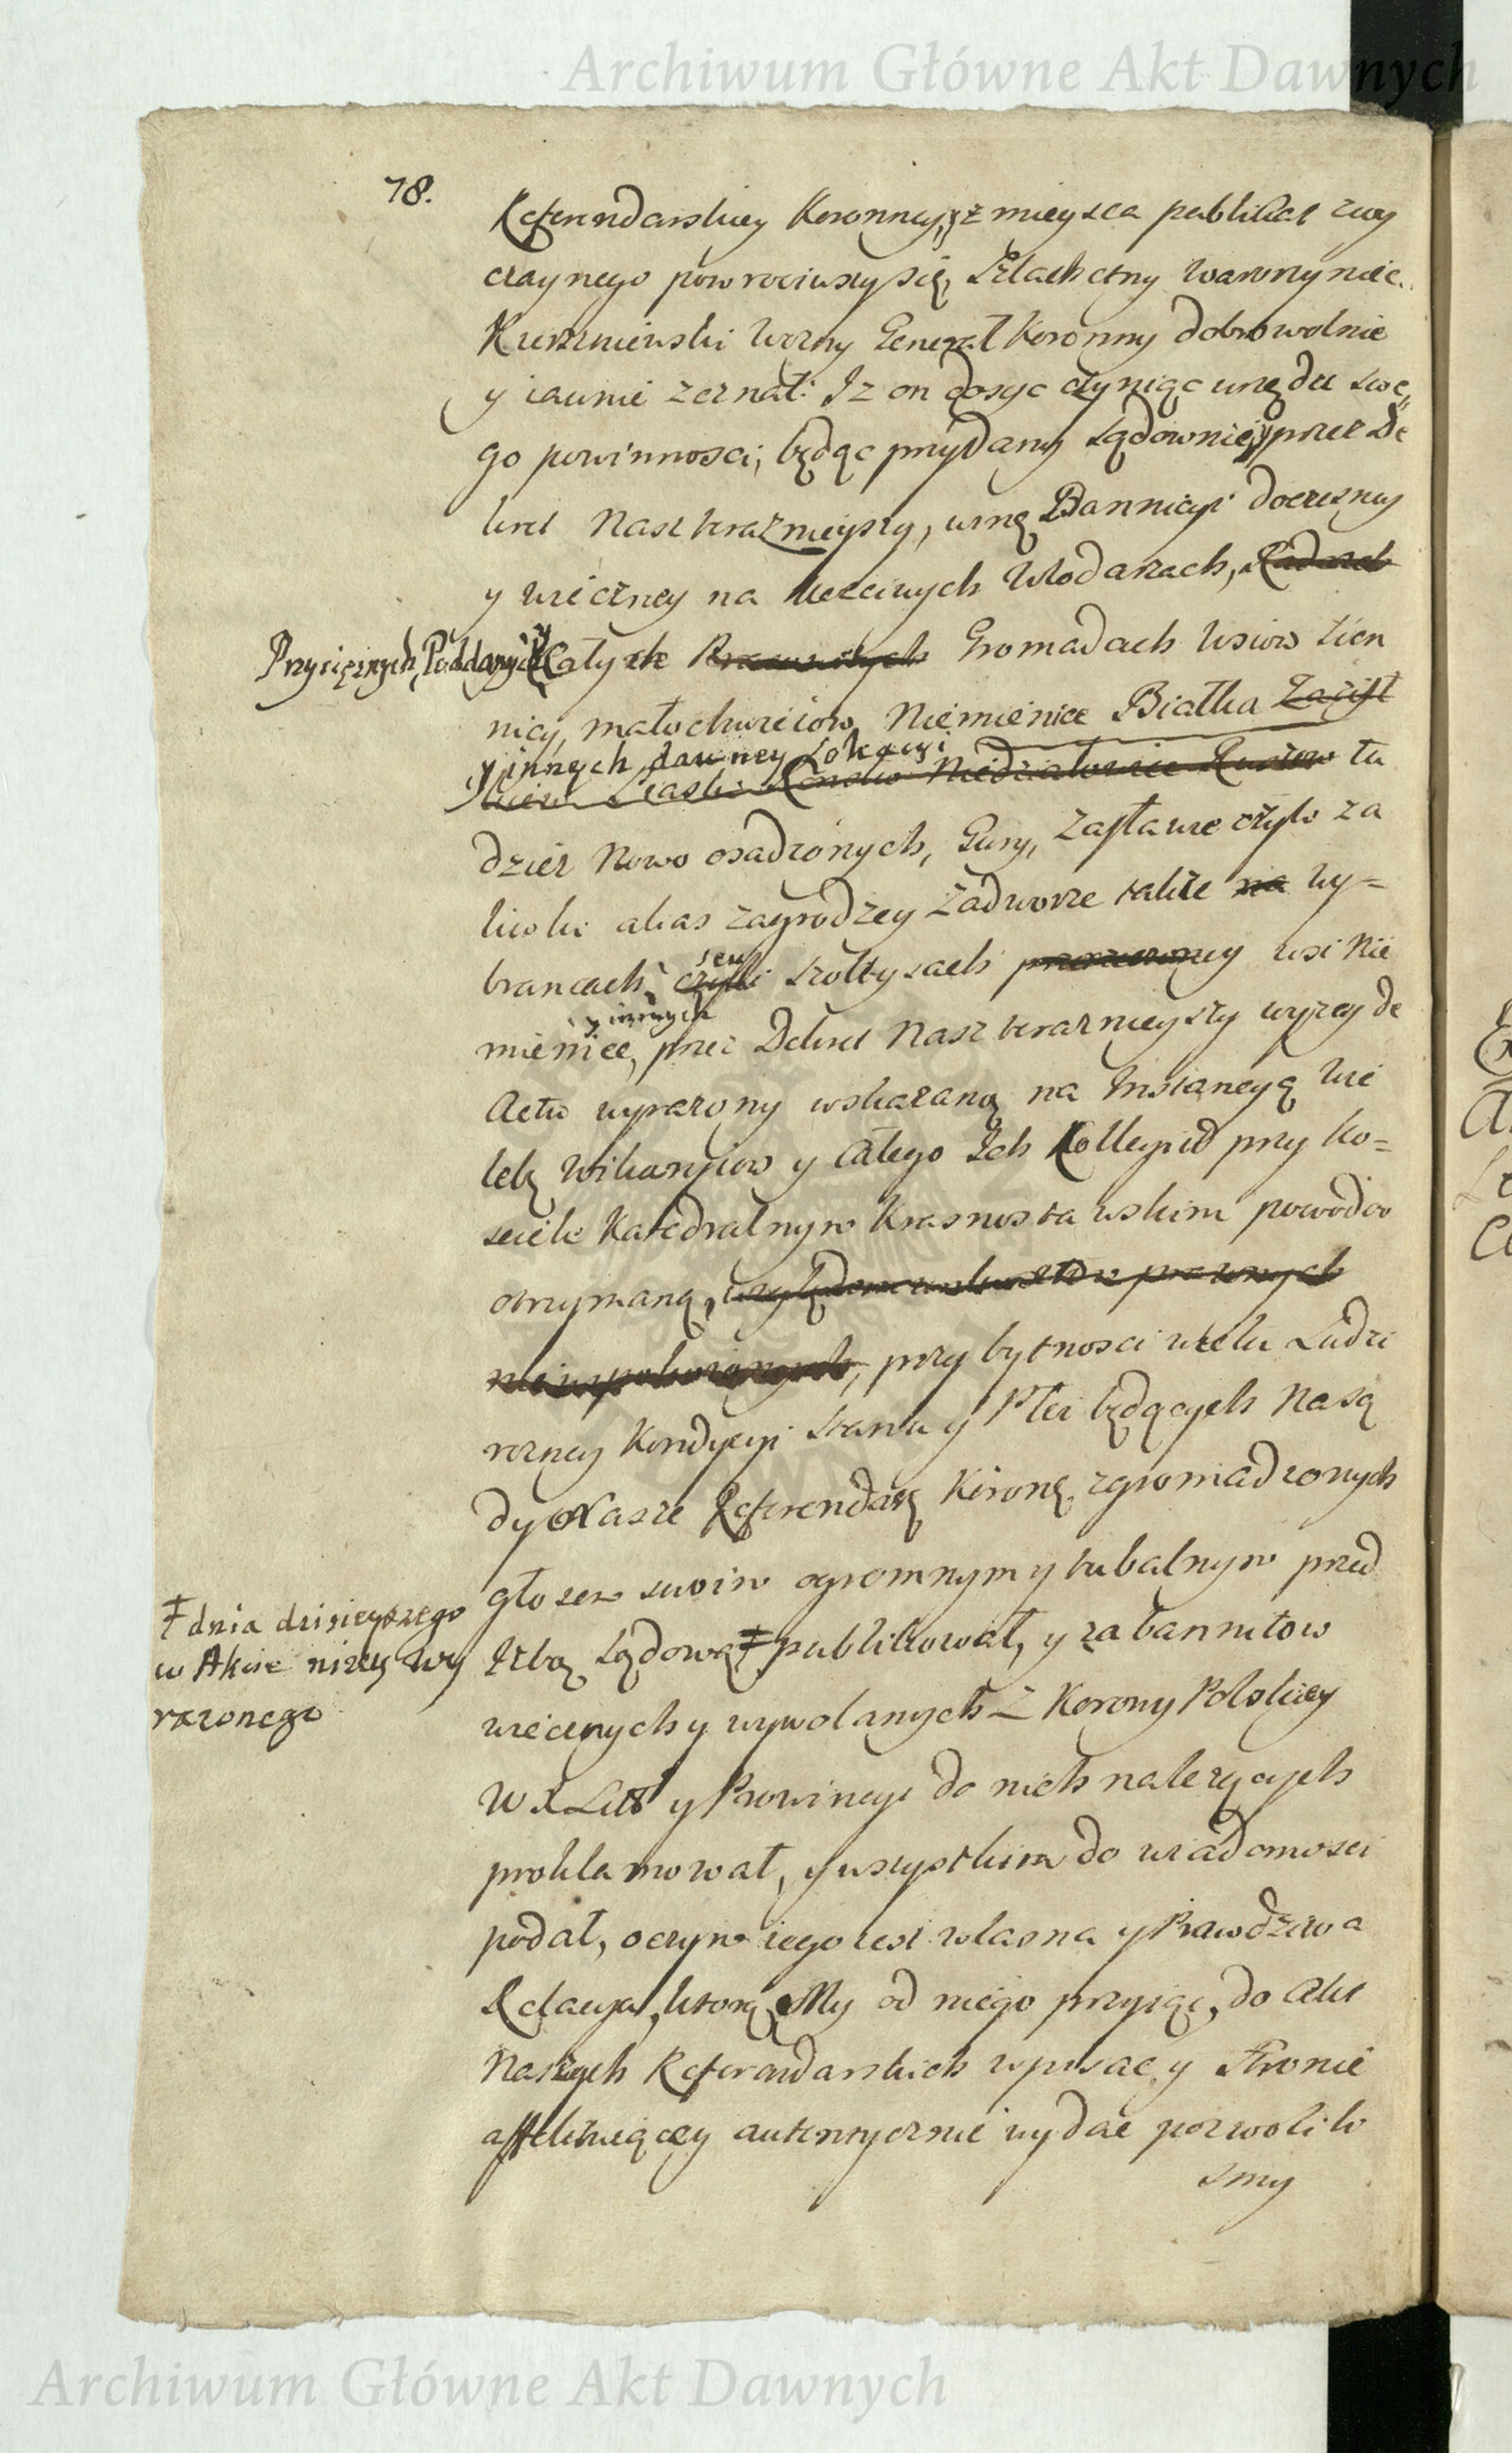 Archiwum Główne Akt Dawnych
78.
Referendarskiey Koronney, z mieysca publikat zwy
czaynego powrociwszy się, Szlachetny Wawrzyniec
Woźny Generał Koronny dobrowolnie
y iawnie zeznał: Iz on dosyc czyniąc urzędu swe
go powinnosci, będąc przydany Sądownie, przez De
kret Nasz teraznieyszy, winę Bannicyi doczesney
y wieczney na uczciwych Włodarzach,
Przysięznych, Poddanych Całych Gromadach Wsiow Sien
nicy, małochwieiow, Niemienice Białka
y innych dawney Lokacyi
Niedziałowice tu
dziez Nowo osadzonych, Gury, Zastawie czyli za
liwki alias zagrodzey Zadworze takze na Wy=
brancach, czyli seu szołtysach wsi Nie
y innych
mienice, przez Dekret Nasz teraznieyszy wyzey de
Actu wyrazony wskazaną na Instancyą Wie
lebę Wikaryiow y całego Ich Kollegiu przy Ko=
sciele Katedralnym Krasnostawskim powodow
otrzymaną,
przy bytnosci wielu Ludzi
rozney Kondycyi stanu y Płci będących Na są
dy Nasze Referendarę Koronę zgromadzonych
głosem swoim ogromnym y tubalnym przed
Ɨ dnia dzisieyszego
w Akcie nizey wy
razonego
Izbą Sądową Ɨ publikował, y za bannitow
wiecznych y wywołanych z Korony Polskiey
W X Litt y Prowincyi do nich nalezących
proklamował, y wszystkim do wiadomosci
podał, o czym iego iest własna y Prawdziwa
Relacya, ktorą My od niego przyiąc, do Akt
Naszych Referendarskich wpisac y Stronie
affektuiącey autentycznie wydac pozwolili
smy
Archiwum Główne Akt Dawnych